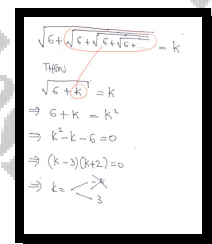 √6+√6+√6+√6+.... = k
THEN
√6+k = k
⇒ 6+k = k²
⇒ k²-k-6=0
⇒ (k-3)(k+2)=0
⇒ k= -2
3